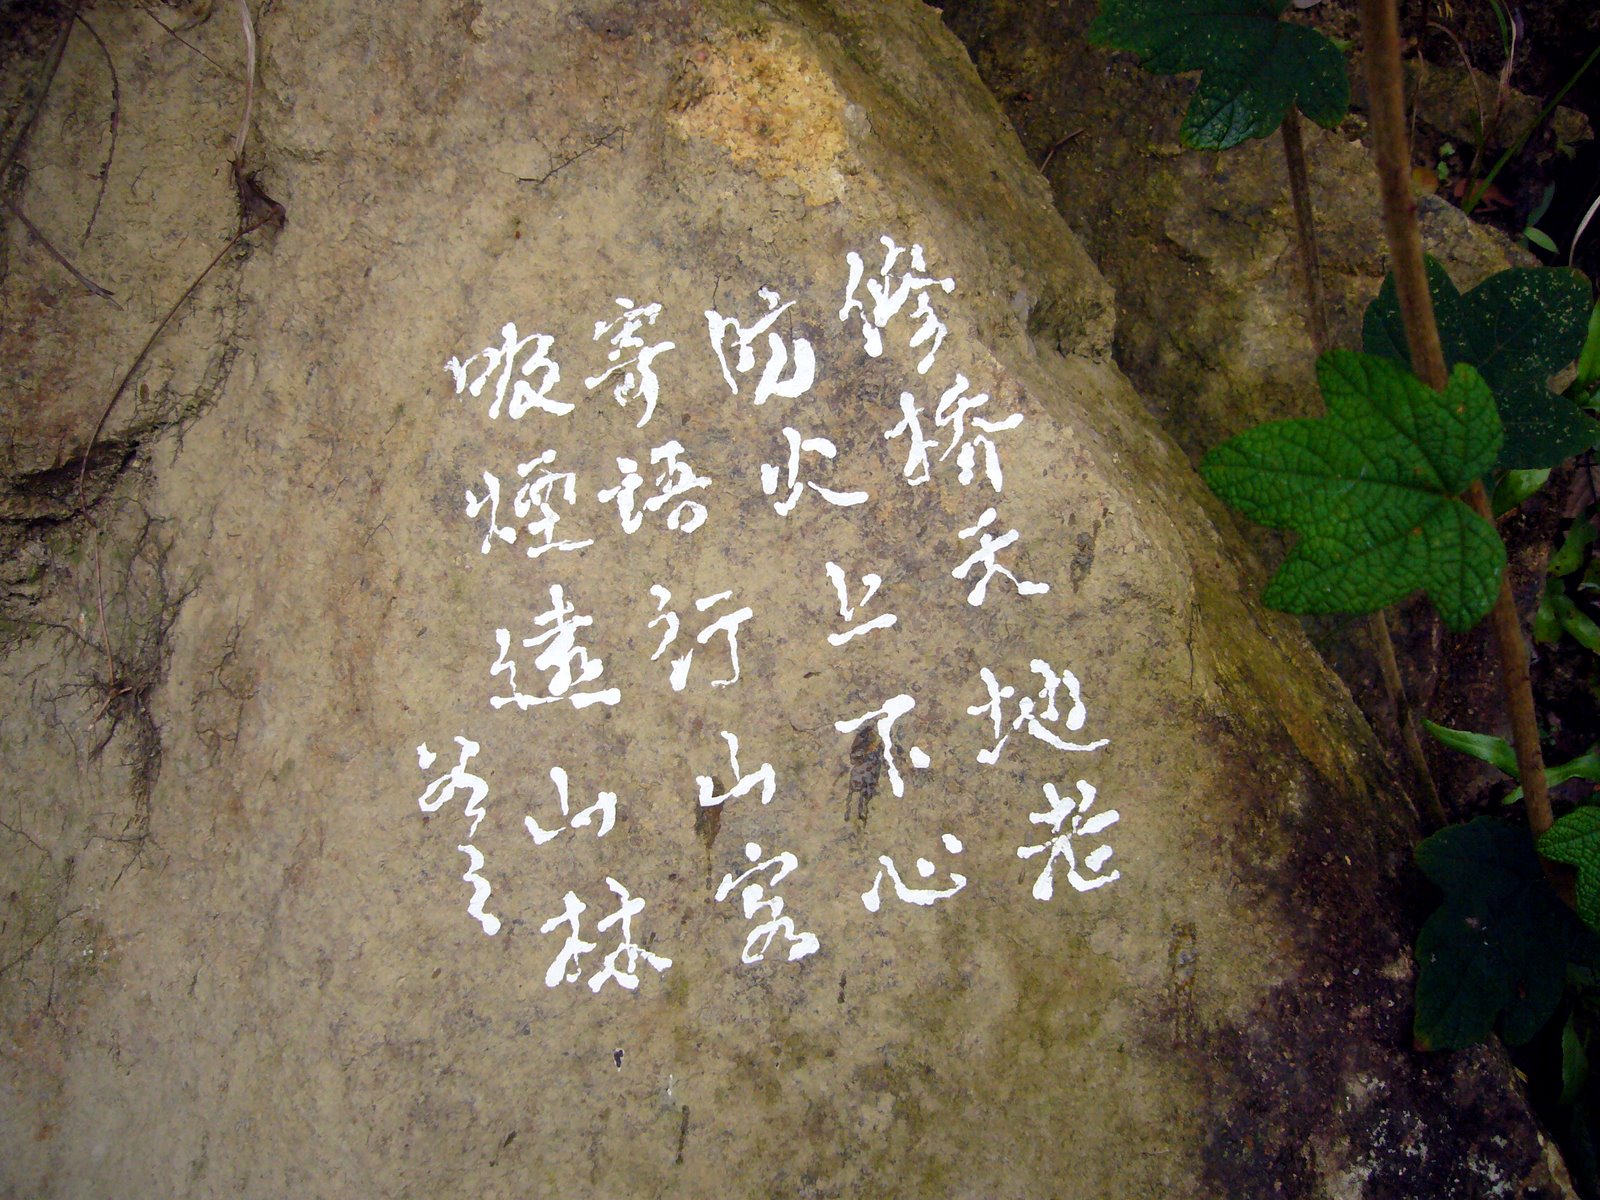 修橋天地老
防火上下心
寄語行山客
吸煙遠山林